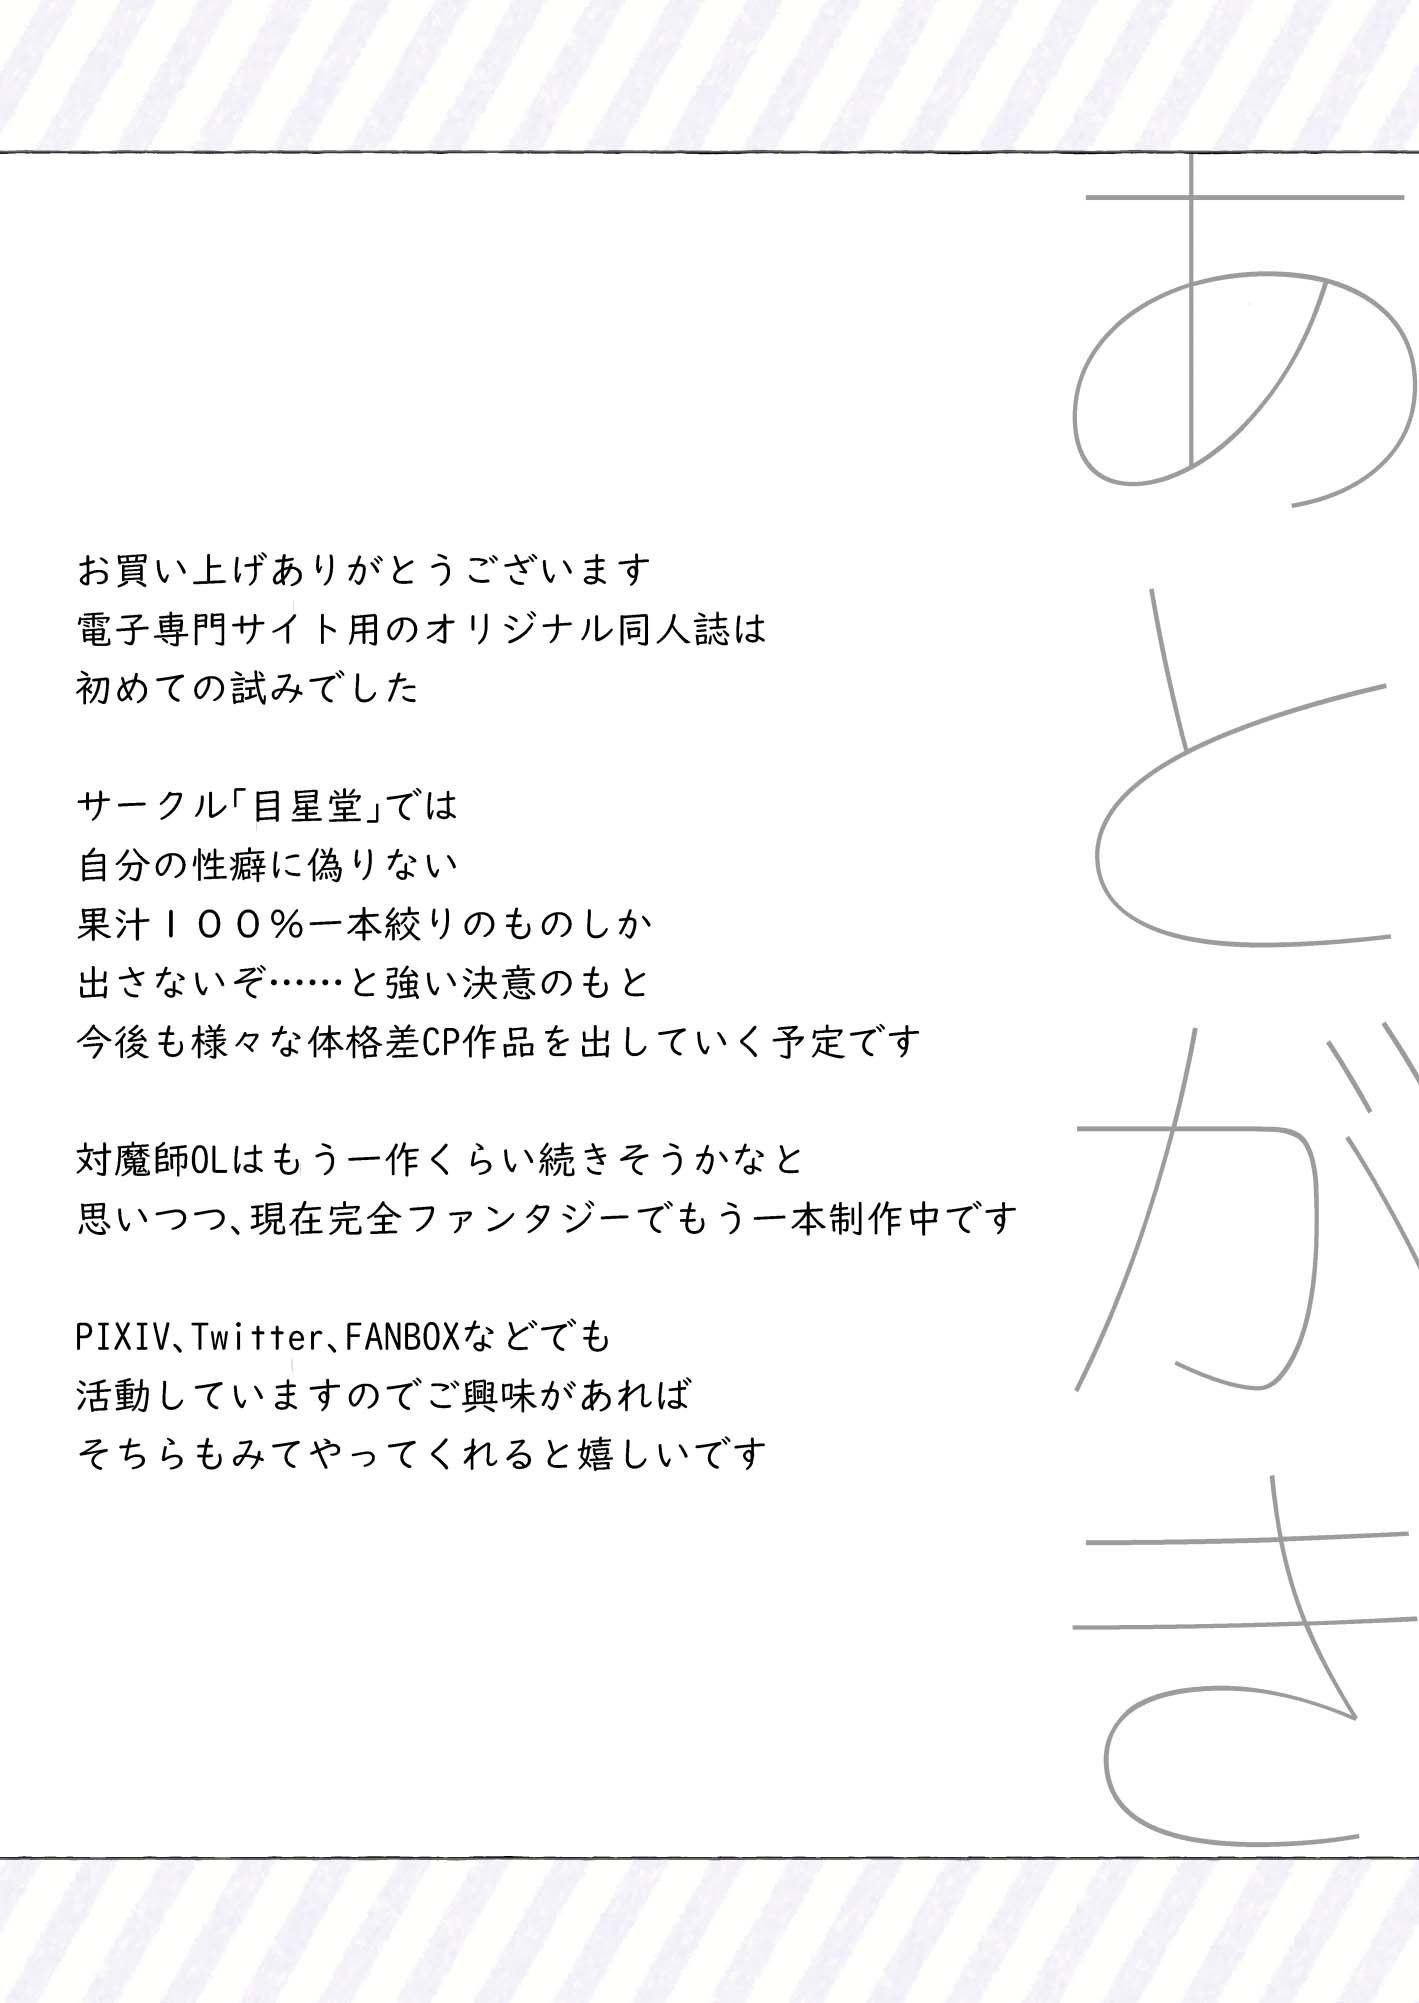 あとがき
お買い上げありがとうございます
電子専門サイト用のオリジナル同人誌は
初めての試みでした
サークル｢目星堂｣では
自分の性癖に偽りない
果汁１００％一本絞りのものしか
出さないぞ……と強い決意のもと
今後も様々な体格差CP作品を出していく予定です
対魔師OLはもう一作くらい続きそうかなと
思いつつ､現在完全ファンタジーでもう一本制作中です
PIXIV､Twitter､FANBOXなどでも
活動していますのでご興味があれば
そちらもみてやってくれると嬉しいです